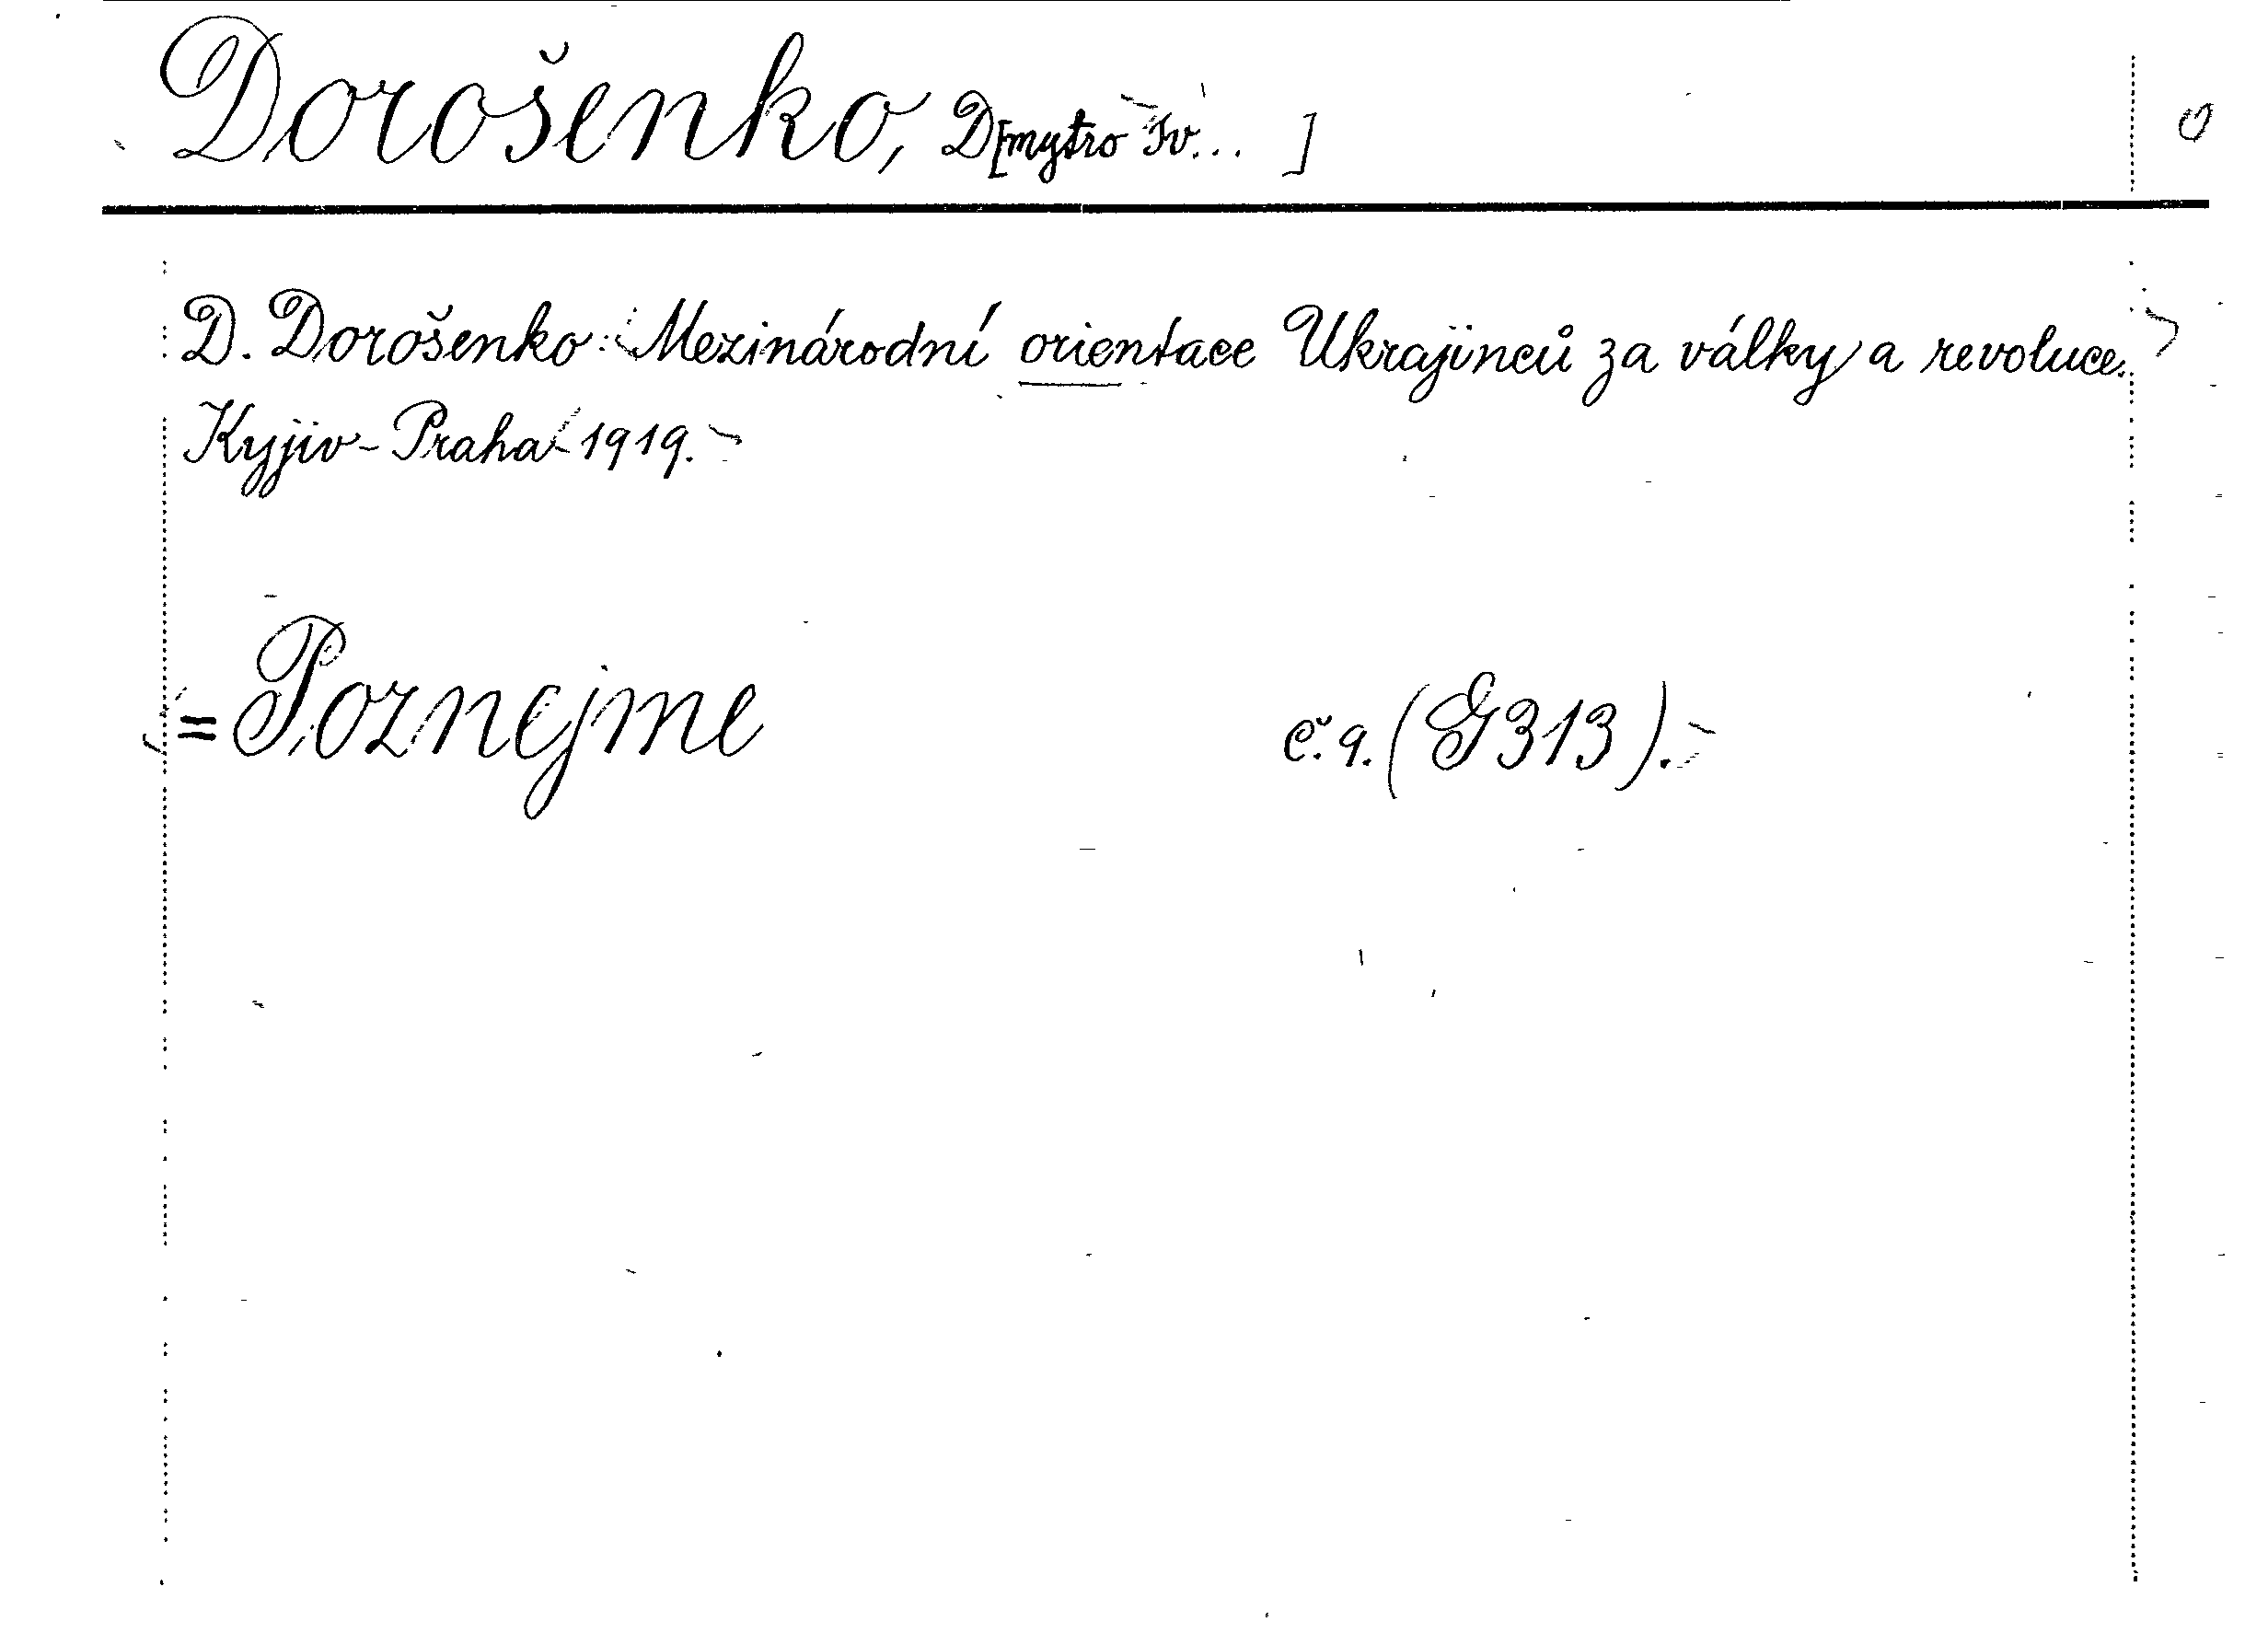 Dorošenko, D[mytro Iv... ]
D. Dorošenko: Mezinárodní orientace Ukrajinců za války a revoluce.
Kyjiv-Praha 1919.
=Poznejme č. 9. (G 313).